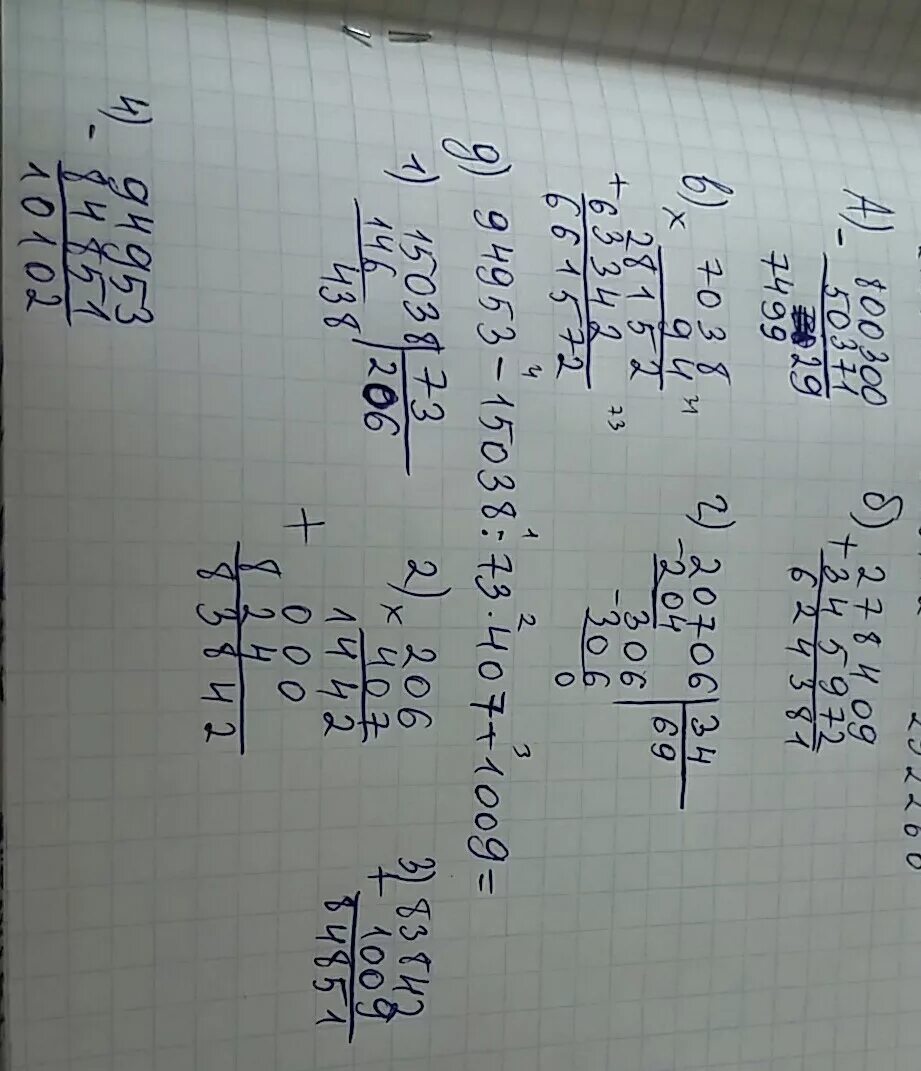 29 2 2 6 0
А) - 800300
50371
749929
б) + 278409
345972
624381
в) × 7038
94
28152
+ 63342
661572
31
73
г) 20706 | 34
- 204 | 69
306
- 306
0
д) 94953 - 15038 : 73 · 407 + 1009 =
4 1 2 3
1) 15038 | 73
146 | 206
438
2) × 206
407
1442
+ 000
824
83842
3) + 83842
1009
84851
4) - 94953
84851
10102